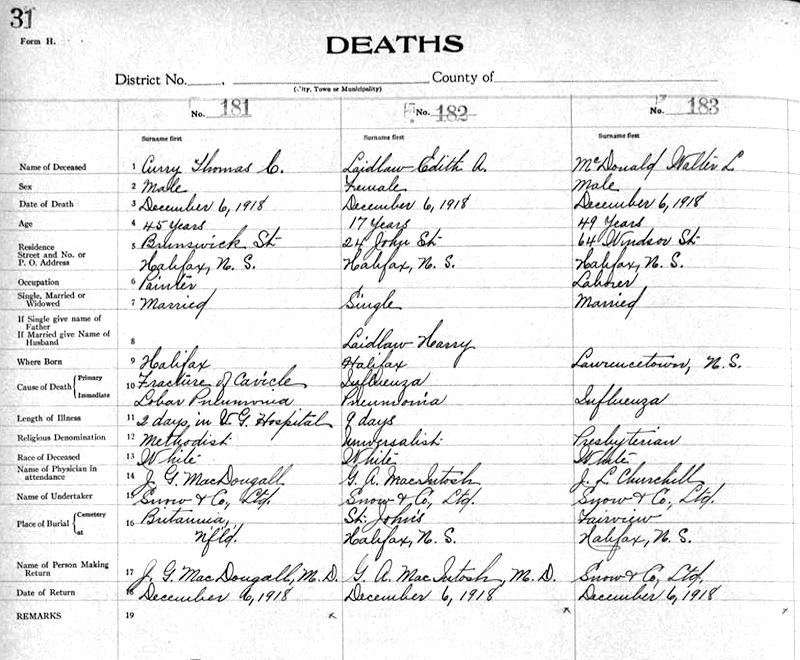 31
Form H.
DEATHS
District No. , County of
(City, Town or Municipality)
No. 181 No. 182 No. 183
Surname first Surname first Surname first
Name of Deceased 1 Curry Thomas C. Laidlaw Edith A. McDonald Walter L
Sex 2 Male Female Male
Date of Death 3 December 6, 1918 December 6, 1918 December 6, 1918
Age 4 45 years 17 Years 49 Years
Residence Street and No. or P. O. Address 5 Brunswick St 24 John St 64 Windsor St
Halifax, N. S. Halifax, N. S. Halifax, N. S.
Occupation 6 Painter Laborer
Single, Married or Widowed 7 Married Single Married
If Single give name of Father
If Married give Name of Husband 8 Laidlaw Harry
Where Born 9 Halifax Halifax Lawrencetown, N. S.
Cause of Death Primary 10 Fracture of Cavicle Influenza
Immediate Lobar Pneumonia Pneumonia Influenza
Length of Illness 11 2 days in V. G. Hospital 9 days
Religious Denomination 12 Methodist Universalist Presbyterian
Race of Deceased 13 White White White
Name of Physician in attendance 14 J. G. MacDougall G. A. MacIntosh J. L Churchill
Name of Undertaker 15 Snow & Co, Ltd. Snow & Co, Ltd. Snow & Co, Ltd.
Place of Burial Cemetery 16 Britannia, St. John's Fairview
at Nfld. Halifax, N. S. Halifax, N. S.
Name of Person Making Return 17 J. G. MacDougall, M. D. G. A. MacIntosh, M. D. Snow & Co, Ltd.
Date of Return 18 December 6, 1918 December 6, 1918 December 6, 1918
REMARKS 19